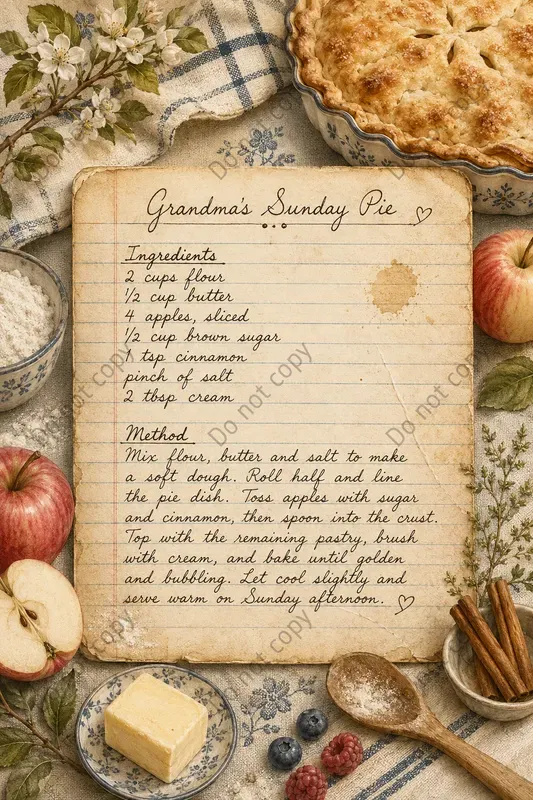 Grandma's Sunday Pie
Ingredients
2 cups flour
1/2 cup butter
4 apples, sliced
1/2 cup brown sugar
1 tsp cinnamon
pinch of salt
2 tbsp cream
Method
Mix flour, butter and salt to make
a soft dough. Roll half and line
the pie dish. Toss apples with sugar
and cinnamon, then spoon into the crust.
Top with the remaining pastry, brush
with cream, and bake until golden
and bubbling. Let cool slightly and
serve warm on Sunday afternoon.
Do not copy
Do not copy
Do not copy
Do not copy
Do not copy
Do not copy
Do not copy
Do not copy
Do not copy